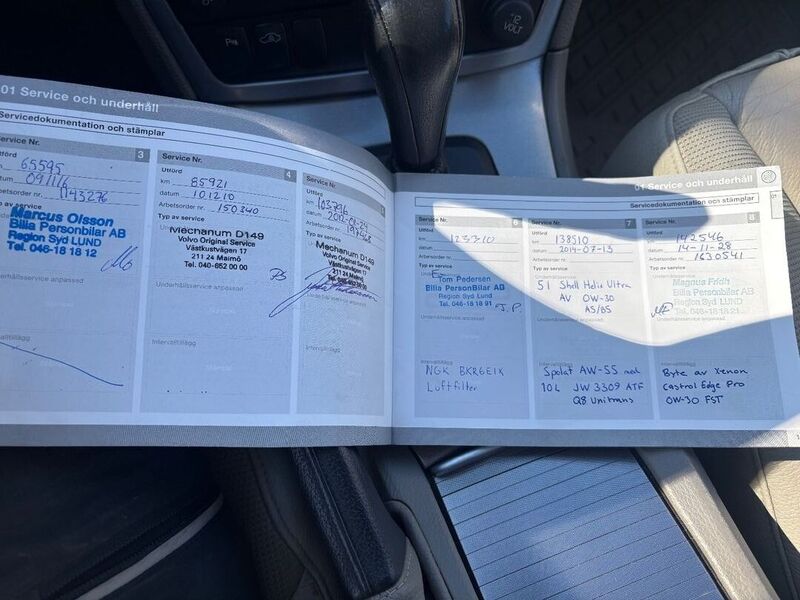 12
VOLT
01 Service och underhåll
Servicedokumentation och stämplar
3
Service Nr.
Utförd
km 65595
datum 091116
Arbetsorder nr. 1143276
Typ av service
Marcus Olsson
Bilia Personbilar AB
Region Syd LUND
Tel. 046-18 18 12
Underhållsservice anpassad
Intervalltillägg
Service Nr. 4
Utförd
km 85921
datum 101210
Arbetsorder nr. 150340
Typ av service
Mechanum D149
Volvo Original Service
Västkustvägen 17
211 24 Malmö
Tel. 040-652 00 00
PS
Underhållsservice anpassad
Intervalltillägg
Service Nr.
Utförd
km 103796
datum 2012-01-24
Arbetsorder nr. 197468
Typ av service
Mechanum D149
Volvo Original Service
Västkustvägen 17
211 24 Malmö
Intervalltillägg
01 Service och underhåll
Servicedokumentation och stämplar
6
Utförd
km 123310
datum
Typ av service
Tom Pedersen
Bilia PersonBilar AB
Region Syd Lund
Tel. 046-18 18 91
T.P.
Underhållsservice anpassad
Intervalltillägg
NGK BKR6EIK
Luftfilter
7
Utförd
km 138510
datum 2014-07-13
Typ av service
5l Shell Helix Ultra
AV 0W-30
A5/B5
Intervalltillägg
Spolat AW-55 med
10L JW 3309 ATF
Q8 Unitrans
8
Utförd
km 142546
datum 14-11-28
Arbetsorder nr. 1630541
Typ av service
Magnus Fridh
Bilia Personbilar AB
Region Syd LUND
Tel. 046-18 18 21
MF
Underhållsservice anpassad
Intervalltillägg
Byte av Xenon
Castrol Edge Pro
0W-30 FST
01